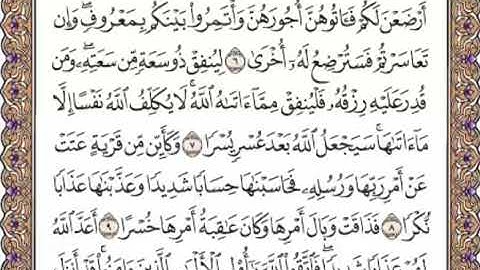 أَرْضَعْنَ لَكُمْ فَـَٔاتُوهُنَّ أُجُورَهُنَّ وَأْتَمِرُوا۟ بَيْنَكُم بِمَعْرُوفٍ ۖ وَإِن
تَعَاسَرْتُمْ فَسَتُرْضِعُ لَهُۥٓ أُخْرَىٰ ٦ لِيُنفِقْ ذُو سَعَةٍ مِّن سَعَتِهِۦ ۖ وَمَن
قُدِرَ عَلَيْهِ رِزْقُهُۥ فَلْيُنفِقْ مِمَّآ ءَاتَىٰهُ ٱللَّهُ ۚ لَا يُكَلِّفُ ٱللَّهُ نَفْسًا إِلَّا
مَآ ءَاتَىٰهَا ۚ سَيَجْعَلُ ٱللَّهُ بَعْدَ عُسْرٍ يُسْرًا ٧ وَكَأَيِّن مِّن قَرْيَةٍ عَتَتْ
عَنْ أَمْرِ رَبِّهَا وَرُسُلِهِۦ فَحَاسَبْنَٰهَا حِسَابًا شَدِيدًا وَعَذَّبْنَٰهَا عَذَابًا
نُّكْرًا ٨ فَذَاقَتْ وَبَالَ أَمْرِهَا وَكَانَ عَٰقِبَةُ أَمْرِهَا خُسْرًا ٩ أَعَدَّ ٱللَّهُ
لَهُمْ عَذَابًا شَدِيدًا ۖ فَٱتَّقُوا۟ ٱللَّهَ يَٰٓأُو۟لِى ٱلْأَلْبَٰبِ ٱلَّذِينَ ءَامَنُوا۟ ۚ قَدْ أَنزَلَ